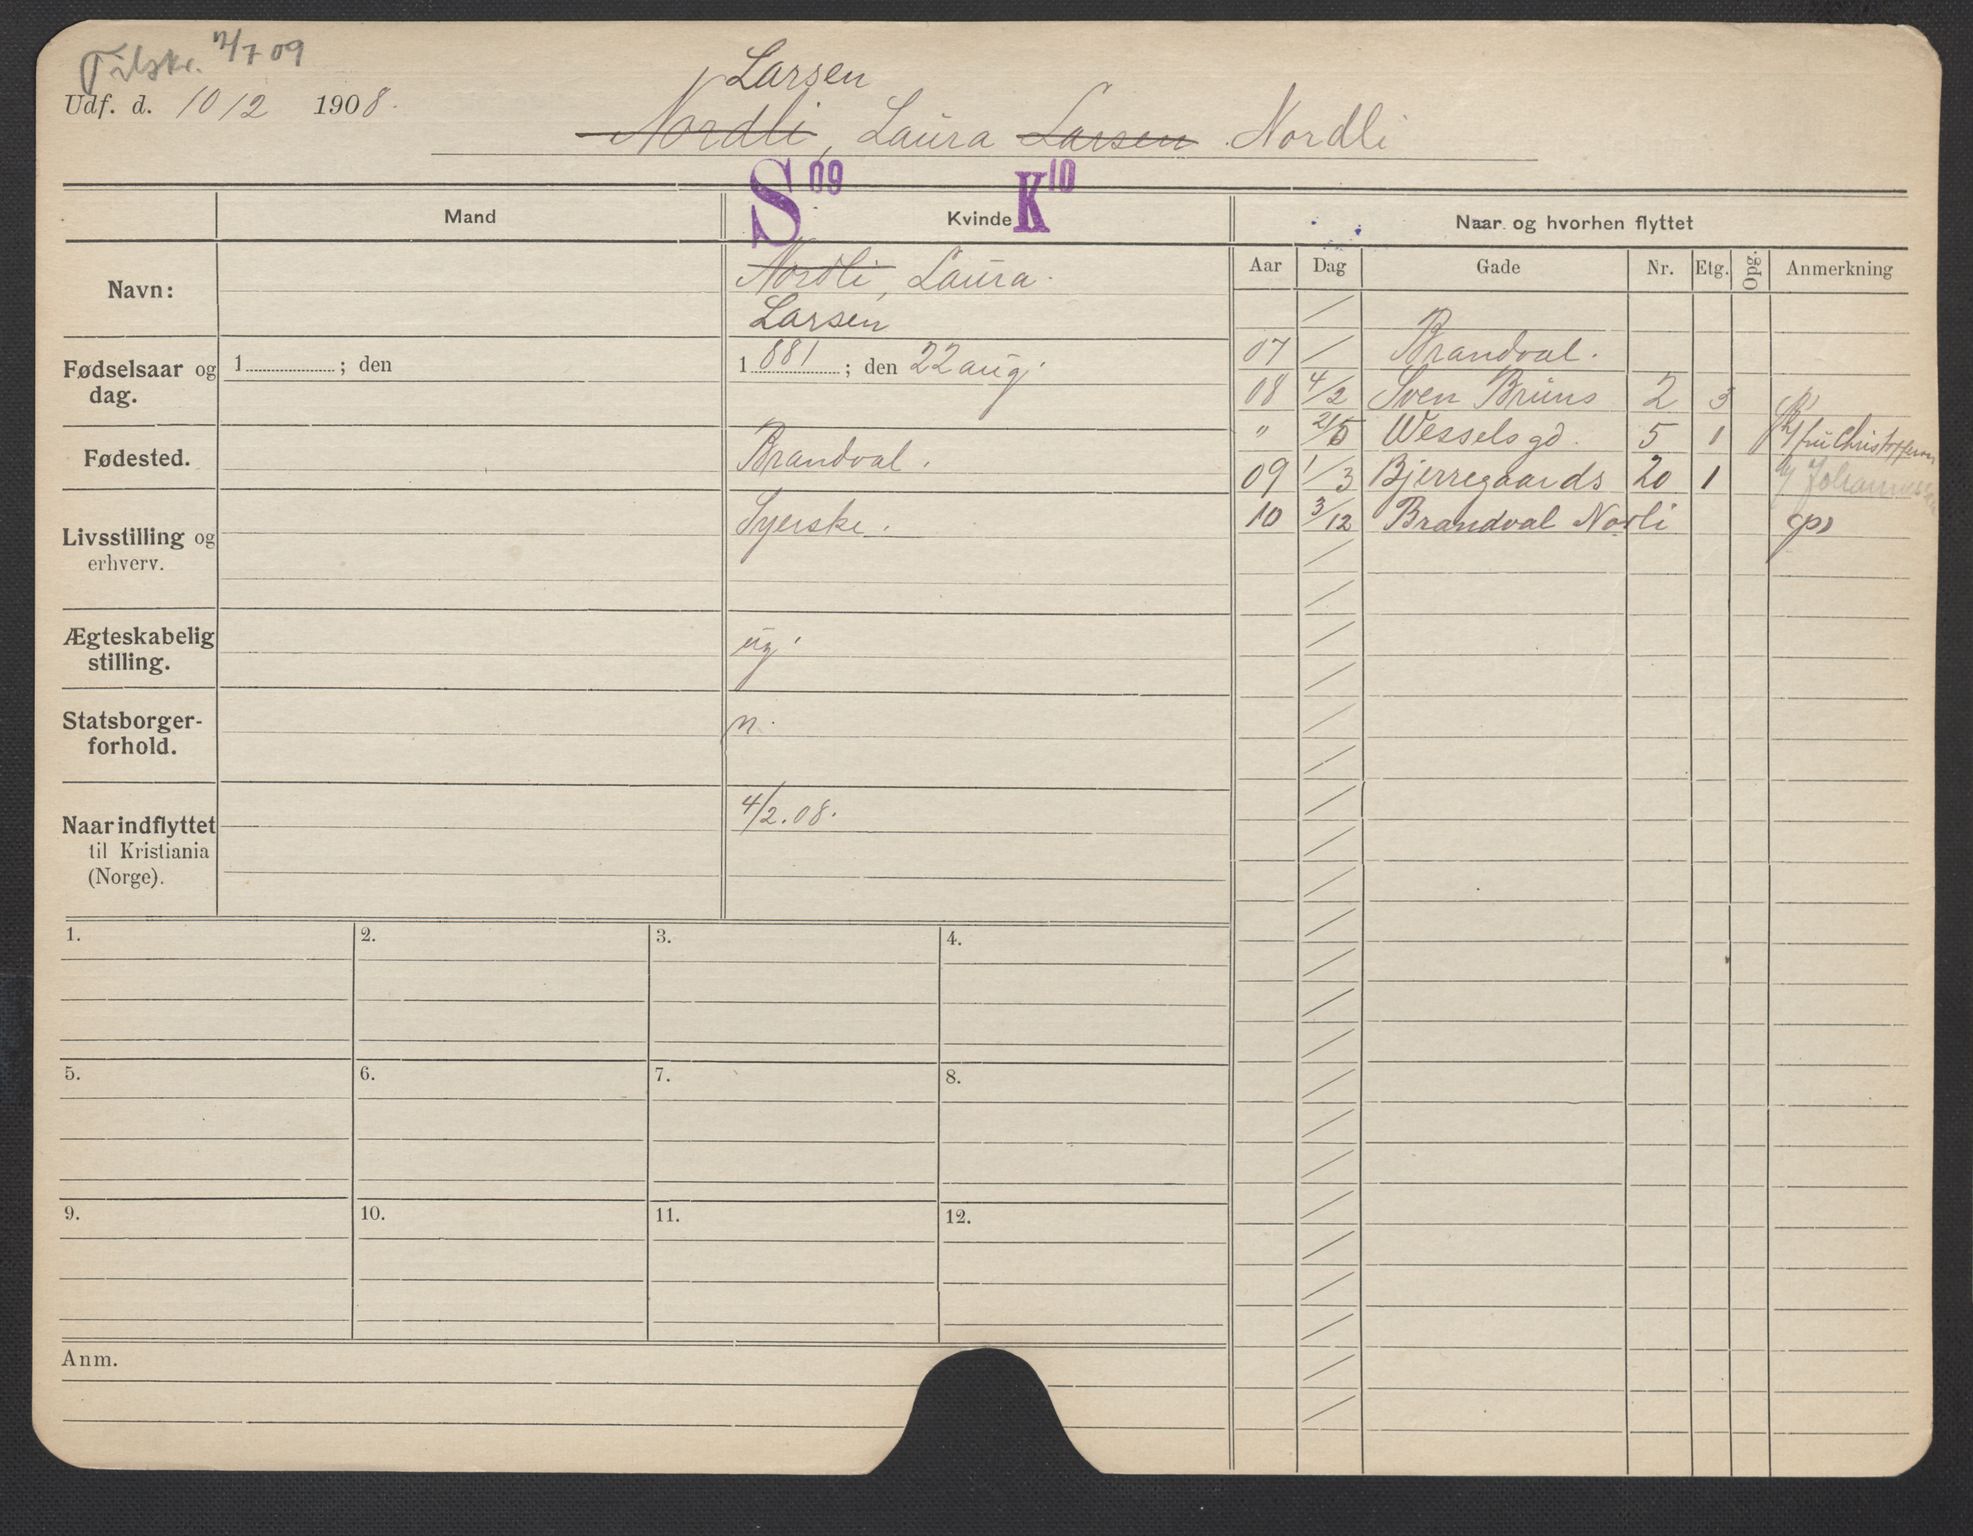 Tilskr. 2/7 09
Udf. d. 10/2 1908.
Larsen
Nordli, Laura Larsen Nordli
S 09 K 10
Mand Kvinde Naar og hvorhen flyttet
Aar Dag Gade Nr. Etg. Opg. Anmerkning
Navn: Nordli, Laura
Larsen
Fødselsaar og dag. 1 ; den 1881 ; den 22 aug.
Fødested. Brandval.
Livsstilling og erhverv. Syerske.
Ægteskabelig stilling. ug.
Statsborgerforhold. n.
Naar indflyttet til Kristiania (Norge). 4/2.08.
07 / Brandval.
08 4/2 Sven Bruns 2 3
" 2/5 Wesselsgd. 5 1 fru Christoffersen
09 1/3 Bjerregaards 20 1 Johannessen
10 3/12 Brandval Norli (p)
1. 2. 3. 4.
5. 6. 7. 8.
9. 10. 11. 12.
Anm.